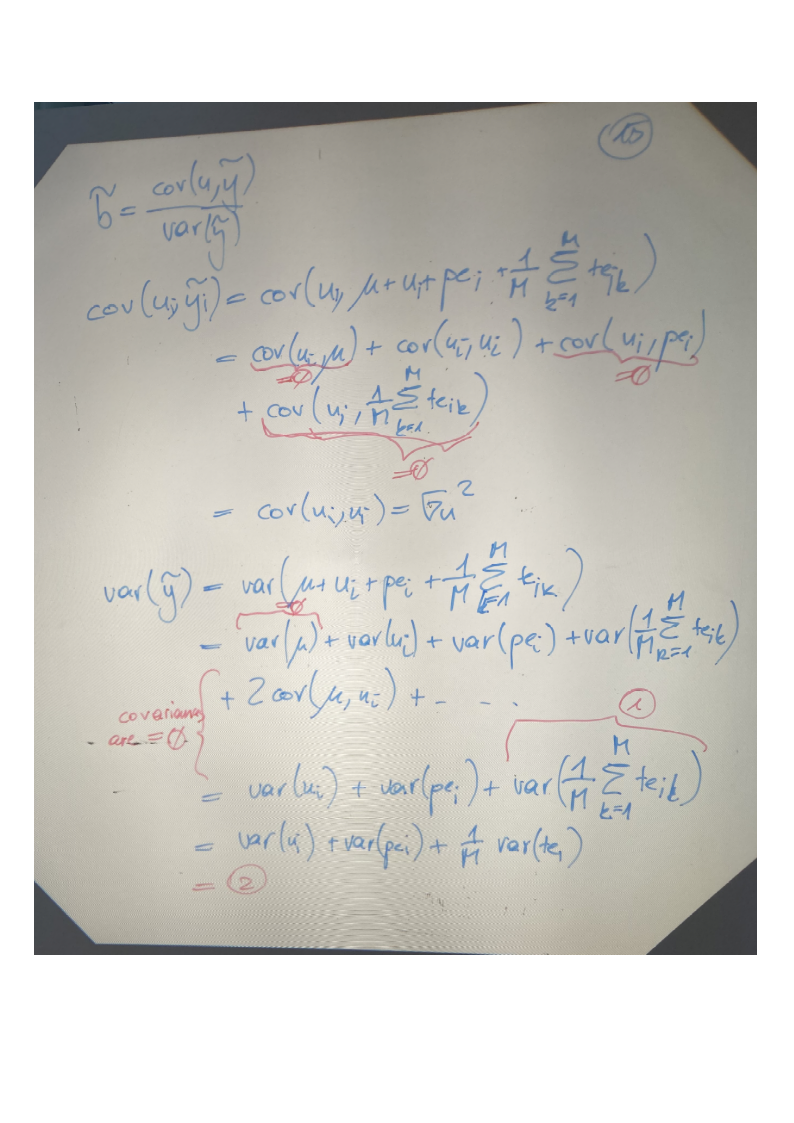 10
b̃ = cov(u,ỹ) / var(ỹ)
cov(ui, ỹi) = cov(ui, μ+ui+pei + 1/M Σ_{k=1}^{M} teik)
= cov(ui,μ) + cov(ui,ui) + cov(ui,pei)
=0 =0
+ cov(ui, 1/M Σ_{k=1}^{M} teik)
=0
= cov(ui,ui) = σu²
var(ỹ) = var(μ+ui+pei + 1/M Σ_{k=1}^{M} teik)
=0
= var(μ) + var(ui) + var(pei) + var(1/M Σ_{k=1}^{M} teik)
+ 2cov(μ,ui) + - - .
covariances
are = 0
1
= var(ui) + var(pei) + var(1/M Σ_{k=1}^{M} teik)
= var(ui) + var(pei) + 1/M var(tei)
= 2